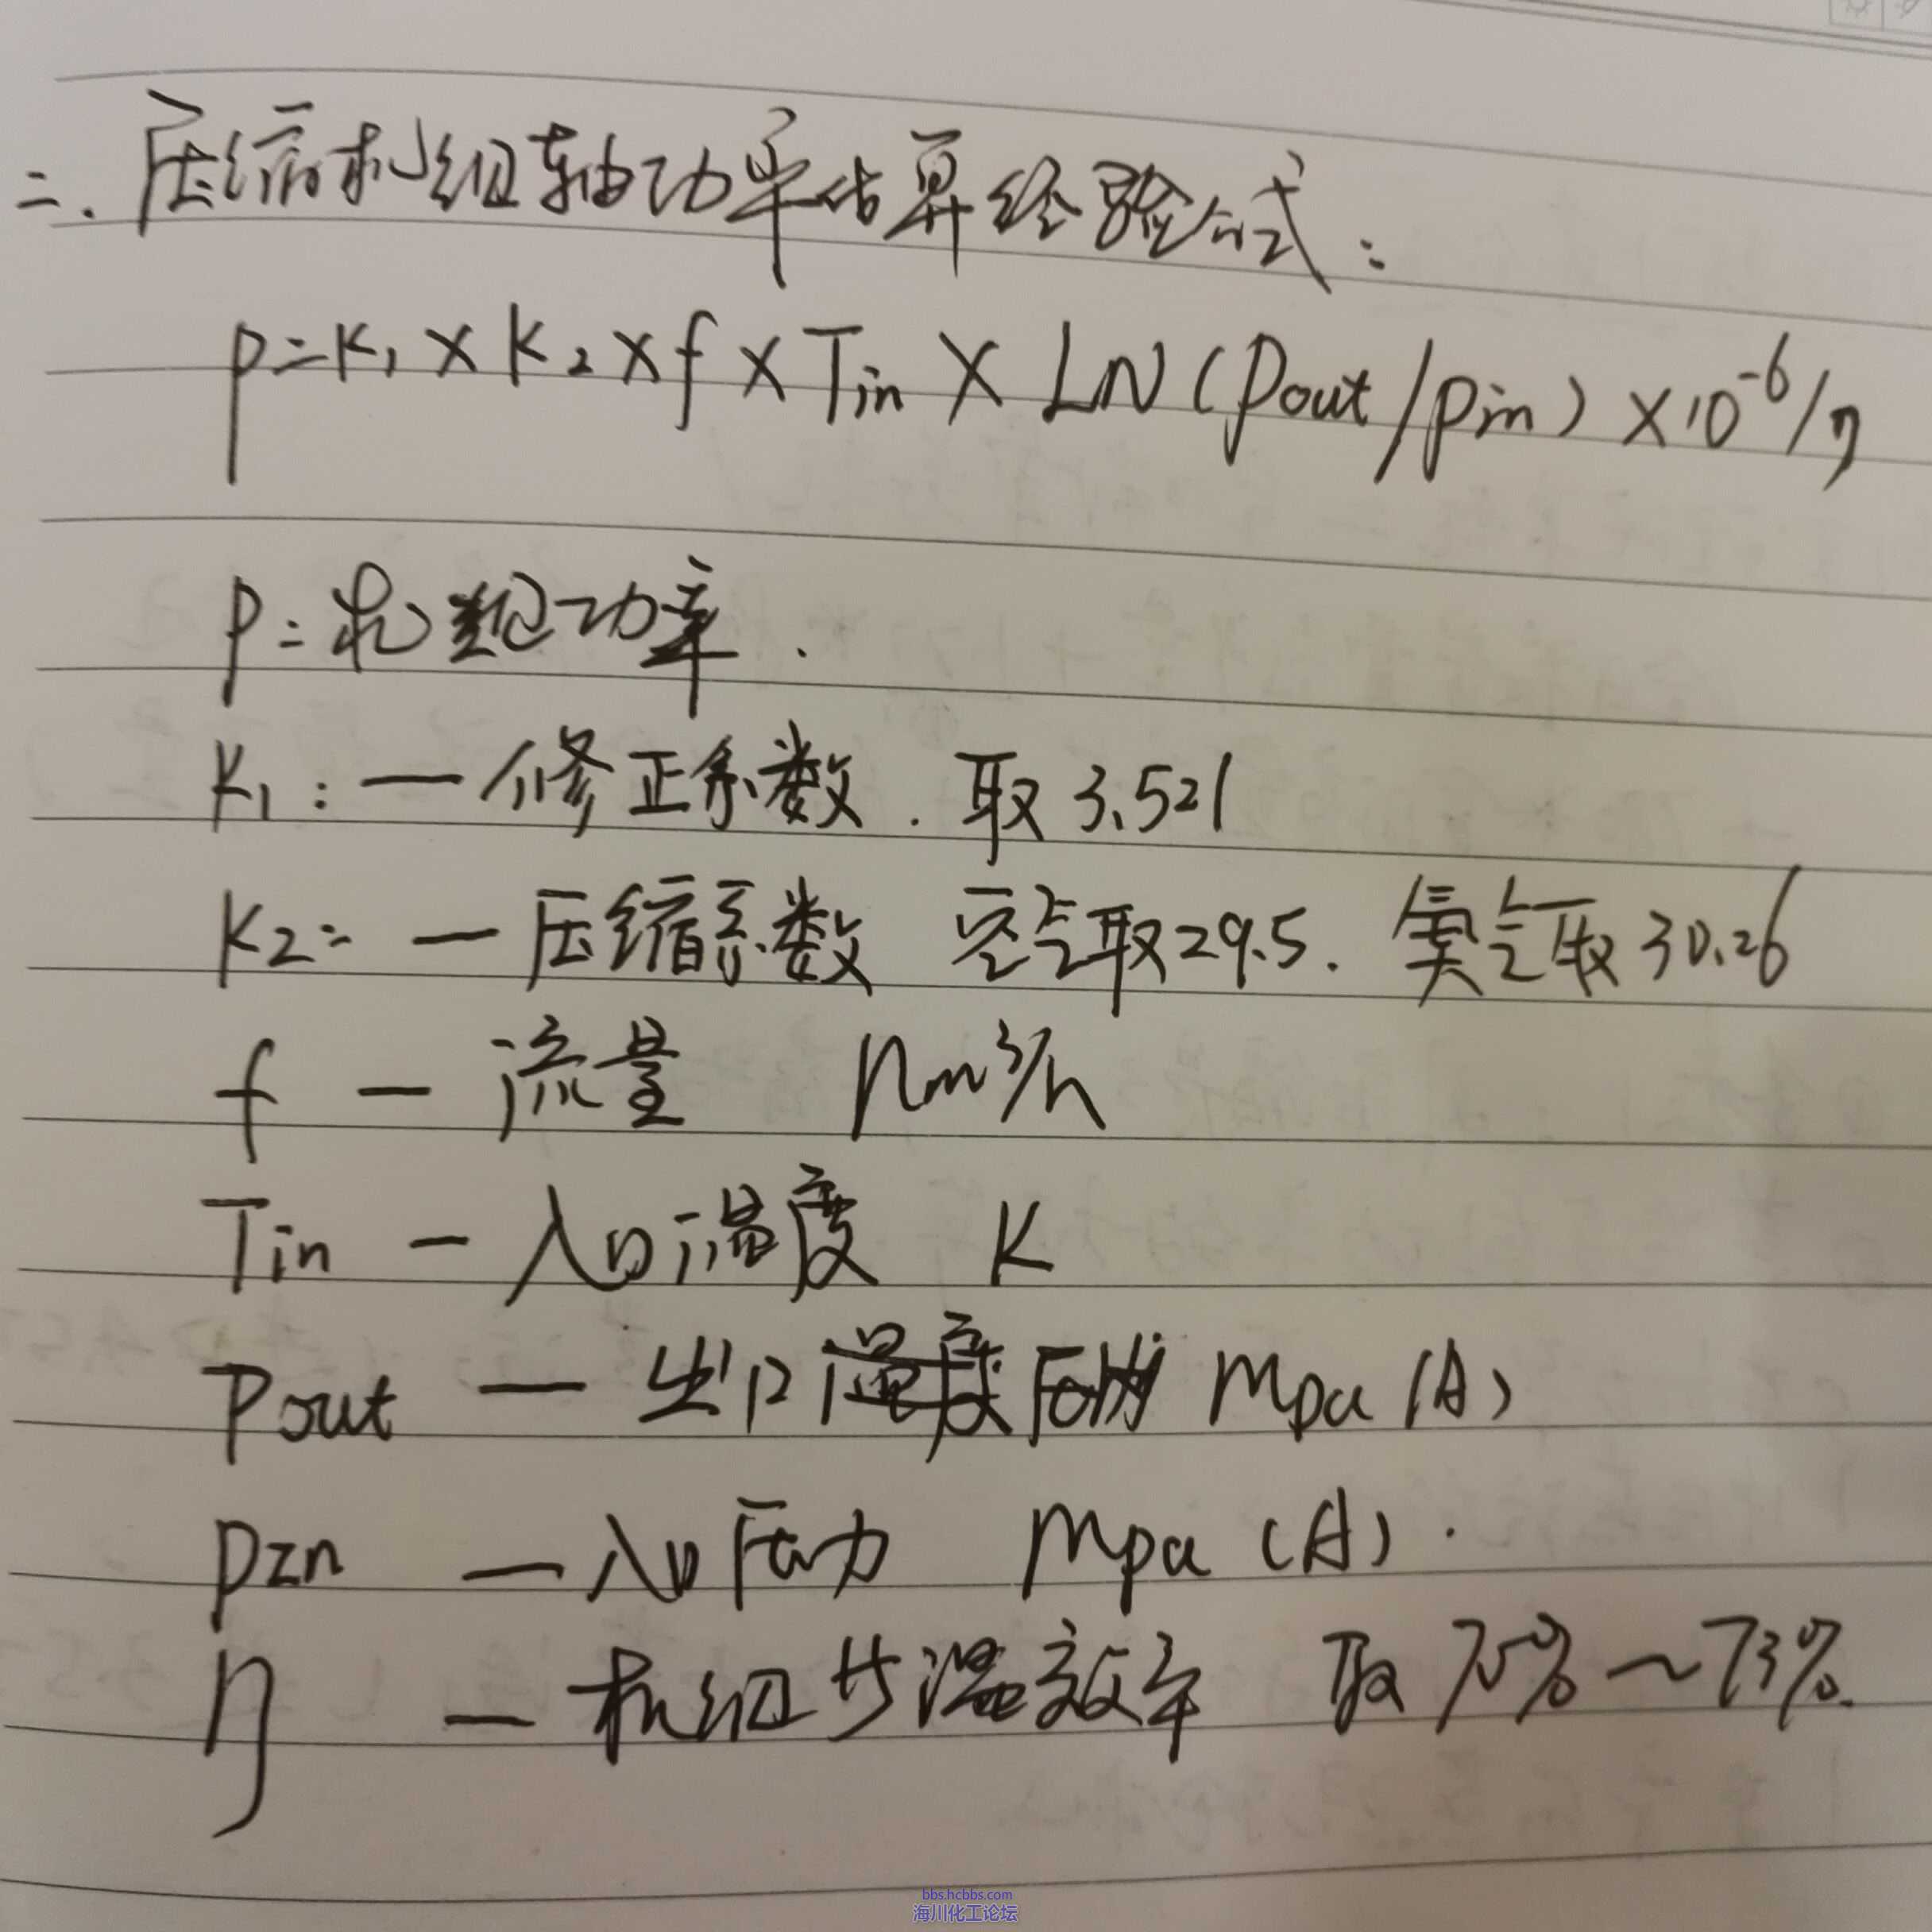 二. 压缩机组轴功率估算经验公式:
P=K₁×K₂×f×Tin×LN(Pout/Pin)×10⁻⁶/η
P: 机组功率.
K₁: — 修正系数. 取 3.521
K₂: — 压缩系数 空气取29.5. 氮气取30.26
f — 流量 Nm³/h
Tin — 入口温度 K
Pout — 出口温度压力 Mpa (A)
PIn — 入口压力 Mpa (A).
η — 机组等温效率 取 75%~73%.
bbs.hcbbs.com
海川化工论坛